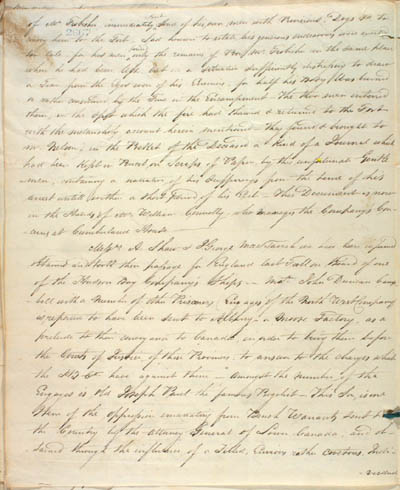 of Mr Frobisher immediately sent of his own men with Provisions, Dogs &c to
bring him to the Fort. Sad however to relate his generous endeavors were
too late. for his men found only the remains of Benj Mr Frobisher in the same place
where he had been left but in a situation sufficiently distressing to draw
a Tear from the Eyes even of his Enemies, for half his Body was burned
or rather consumed by the Fire in the Encampment. The two men interred
them, in the spot which the fire had thawed & returned to the Fort
with the melancholy account herein mentioned. They found & brought to
Mr Nelson, in the Pocket of the Deceased a kind of a Journal which
had been kept in Pencil on Scraps of Paper by this unfortunate Gentle
men, containing a narrative of his sufferings from the time of his
arrest until within a short Period of his Exit. This Document is now
in the Hands of Mr William Connolly who manages the Company's Con
cerns at Cumberland House
Messrs A. Shaw & J. George MacTavish we also have
obtained their passage for England last Fall on Board of one
of the Hudson Bay Company's Ships. Mr John Duncan Camp
bell with a Number of other Prisoners, Engages of the North West Company
is reported to have been sent to Albany or Moose Factory, as a
prelude to their conveyance to Canada in order to bring them before
the Courts of Justice of this Province, to answer to the charges which
the HB Co have against them. Amongst the number of the
Engages is Old Joseph Paul the famous Pugilist. This Sir, is one
Item of the oppression emanating from Bench Warrants sent to
the Country by the Attorney General of Lower Canada, and ob
tained through the influence of a Titled, Clamorous rather